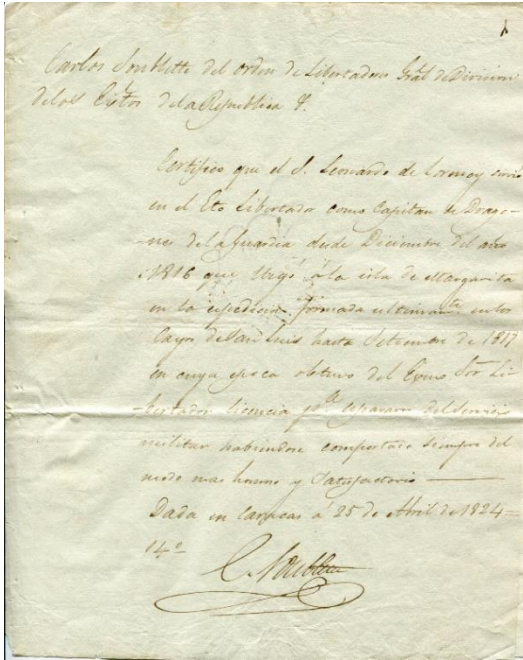 1
Carlos Soublette del orden de Libertadores Gral de Division
de los Extos de la Republica &.
Certifico que el S. Leonardo de Lormoy sirvio
en el Eto Libertador como Capitan de Drago-
-nes de la guardia desde Diciembre del año
1816 que llegó a la isla de Margarita
en la espedicion formada ultimamte en los
Cayos de San Luis hasta Setiembre de 1817
en cuya epoca obtuvo del Exmo Sor Li-
-bertador licencia pa separarse del Servicio
militar habiendose comportado siempre del
modo mas honroso y satisfactorio
Dada en Caracas á 25 de Abril de 1824=
14º
C. Soublette